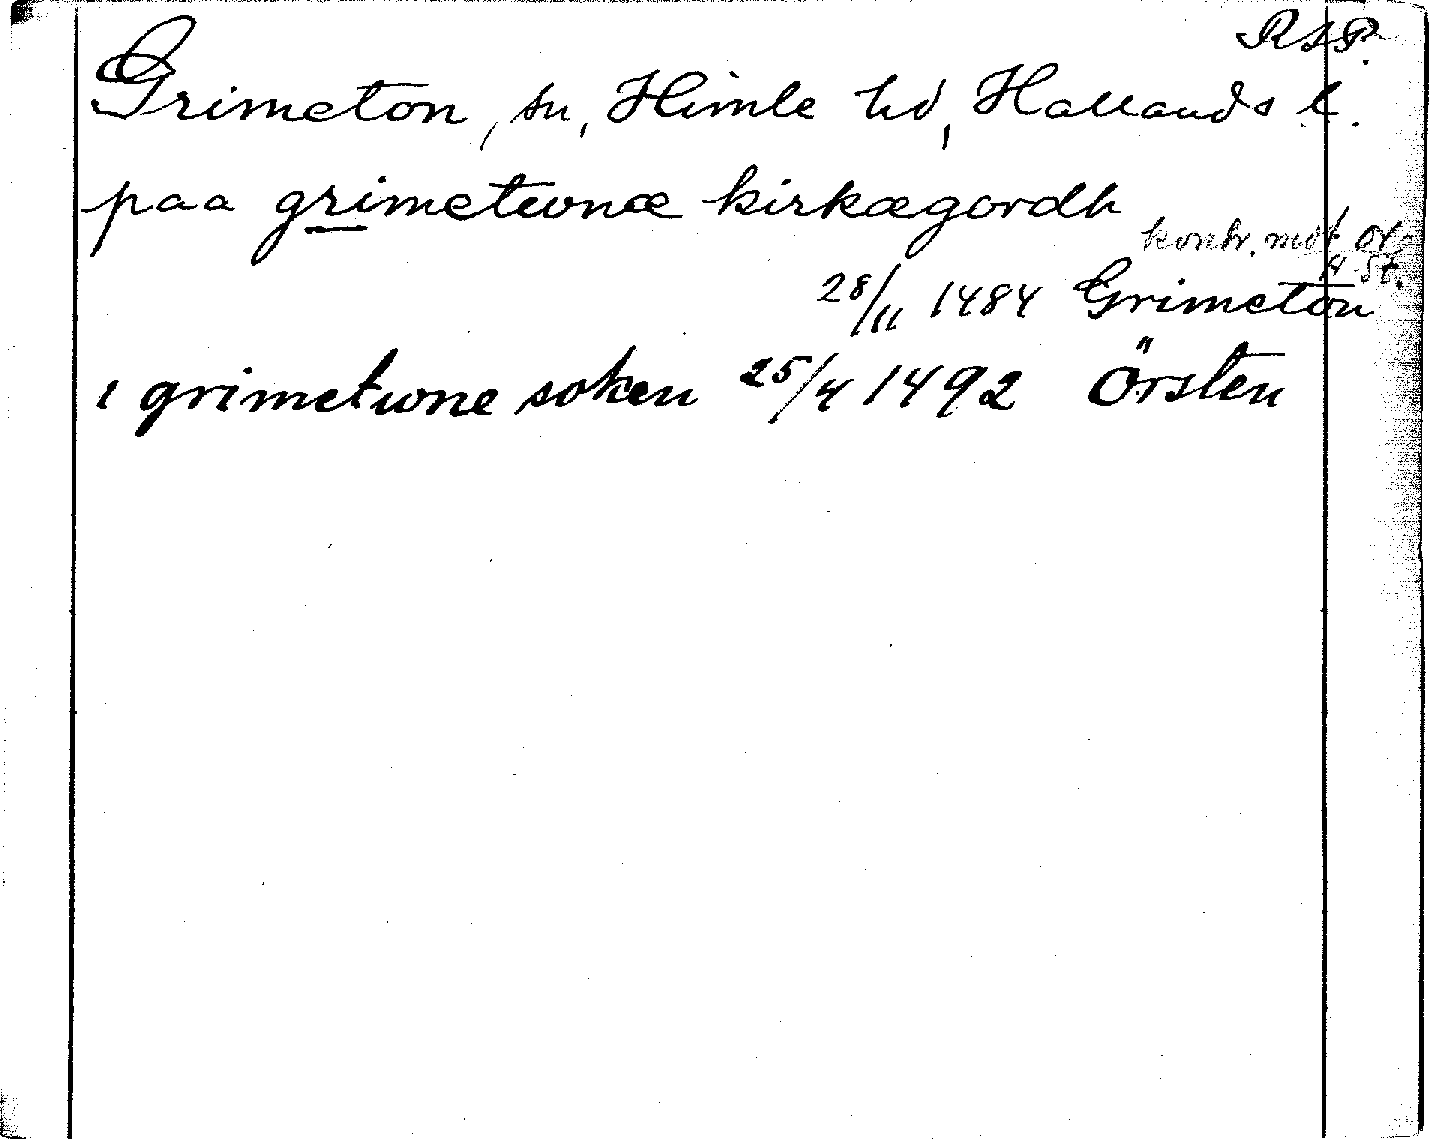 RAP.
Grimeton, sn, Himle hd, Hallands l.
paa grimetwnæ kirkægordh
kontr. mot or.
H St.
28/11 1484 Grimeton
i grimetwne soken 25/4 1492 Örsten